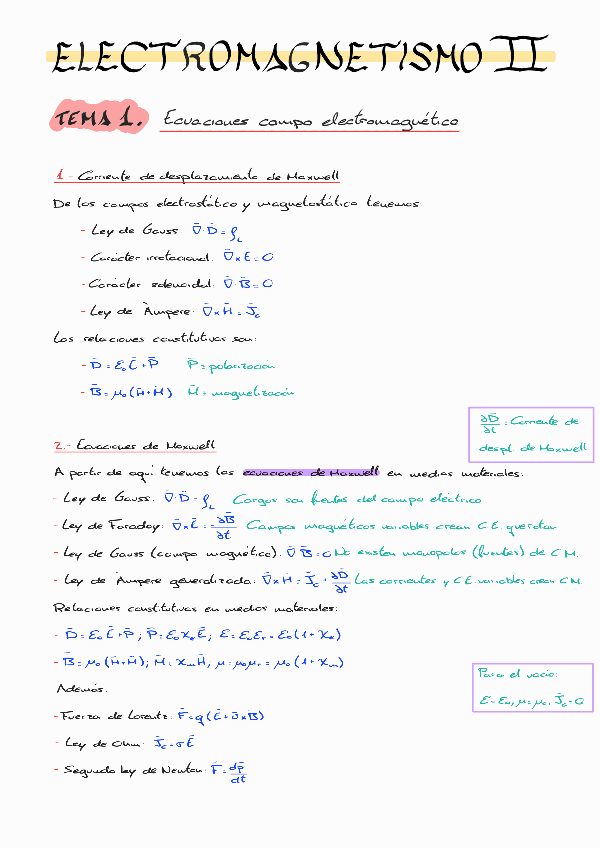 ELECTROMAGNETISMO II
TEMA 1. Ecuaciones campo electromagnético
1.- Corriente de desplazamiento de Maxwell
De los campos electrostático y magnetostático tenemos:
- Ley de Gauss: ∇̄·D̄ = ρL
- Carácter irrotacional: ∇̄×Ē = 0
- Carácter solenoidal: ∇̄·B̄ = 0
- Ley de Àmpere: ∇̄×H̄ = J̄c
Las relaciones constitutivas son:
- D̄ = ε₀Ē + P̄ P̄ = polarización
- B̄ = μ₀(H̄+M̄) M̄ = magnetización
∂D̄/∂t : Corriente de
despl. de Maxwell
2.- Ecuaciones de Maxwell
A partir de aquí tenemos las ecuaciones de Maxwell en medios materiales:
- Ley de Gauss: ∇̄·D̄ = ρL Cargas son fuentes del campo eléctrico
- Ley de Faraday: ∇̄×Ē = -∂B̄/∂t Campos magnéticos variables crean C.E. que rotan
- Ley de Gauss (campo magnético): ∇̄·B̄ = 0 No existen monopolos (fuentes) de C.M.
- Ley de Àmpere generalizada: ∇̄×H̄ = J̄c + ∂D̄/∂t Las corrientes y C.E. variables crean C.M.
Relaciones constitutivas en medios materiales:
- D̄ = ε₀Ē + P̄; P̄ = ε₀χeĒ; ε = ε₀εr = ε₀(1+χe)
- B̄ = μ₀(H̄+M̄); M̄ = χmH̄, μ = μ₀μr = μ₀(1+χm)
Para el vacío:
ε = ε₀, μ = μ₀, J̄c = 0
Además:
- Fuerza de Lorentz: F̄ = q(Ē + v̄×B̄)
- Ley de Ohm: J̄c = σĒ
- Segunda ley de Newton: F̄ = dp̄/dt